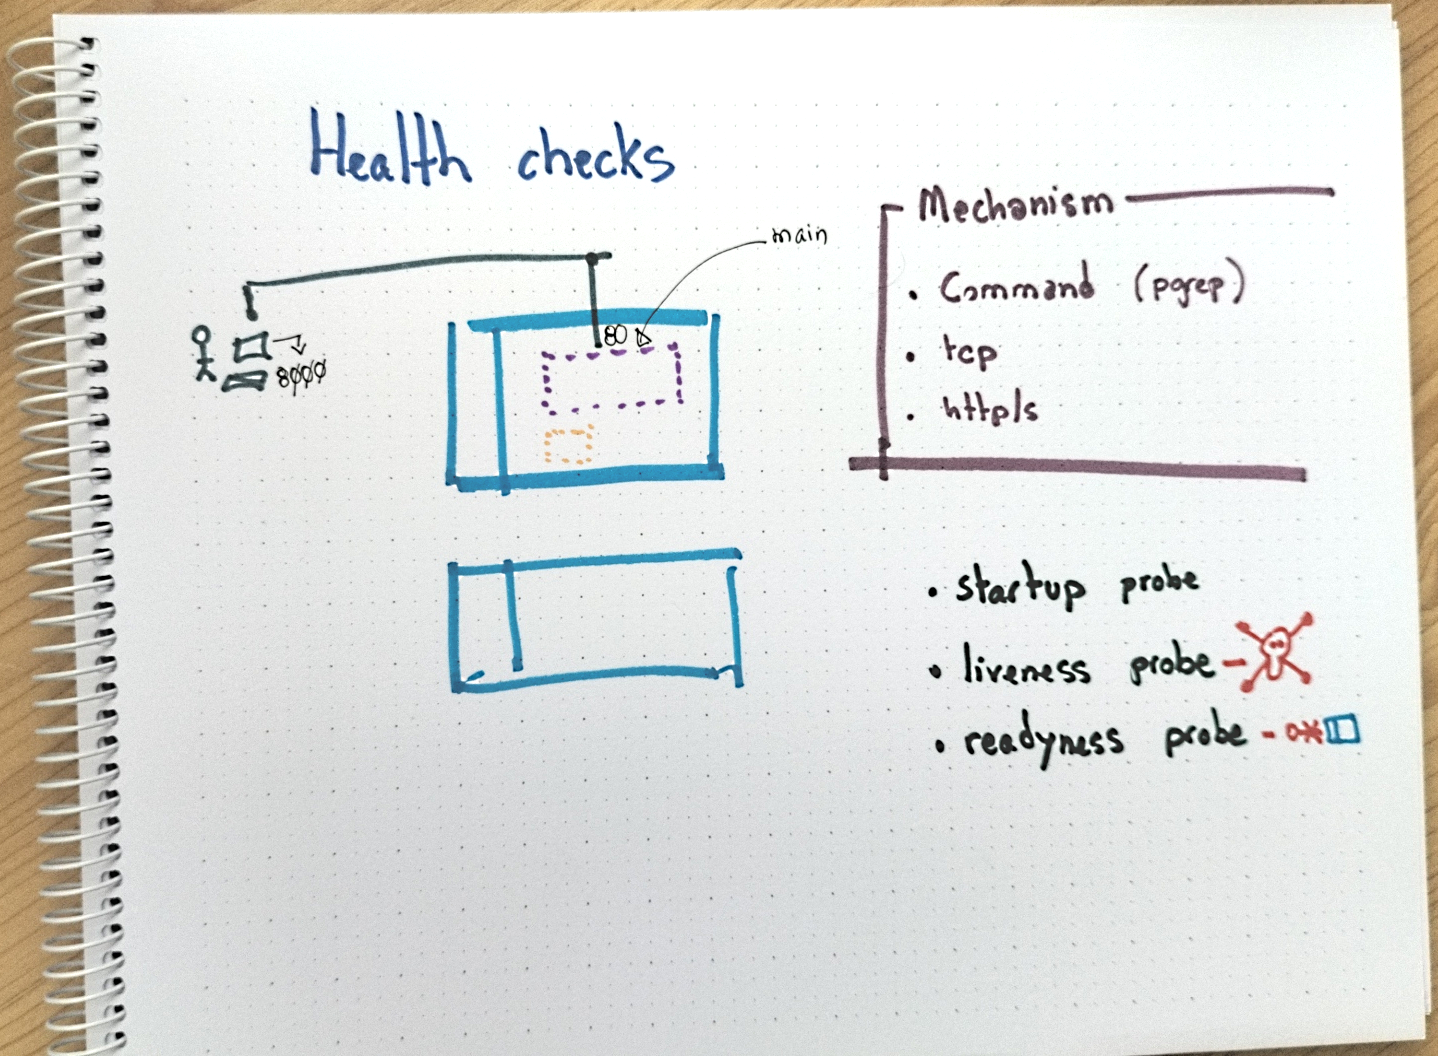 Health checks
main
80
8000
Mechanism
• Command (pgrep)
• tcp
• http/s
• startup probe
• liveness probe -
• readyness probe -